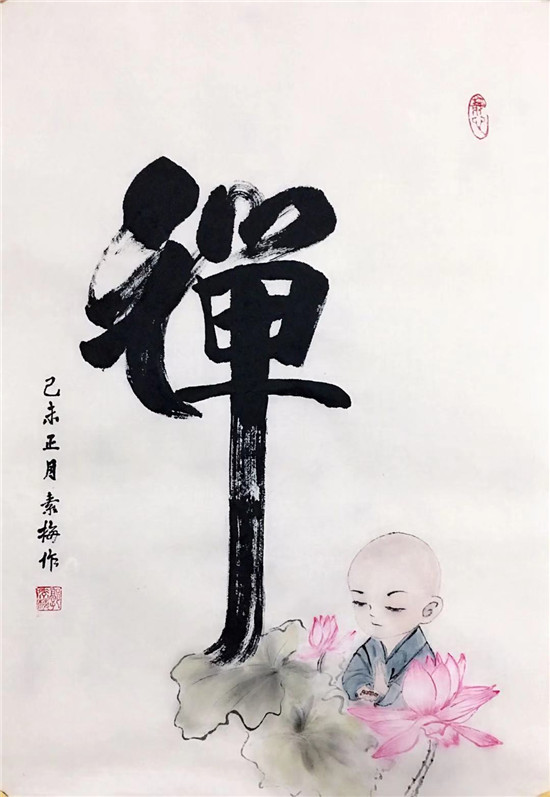 禪
己未正月素梅作